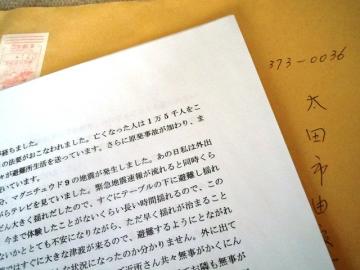 373-0036
太田市由良
経ちました。
の法要がおこなわれました。亡くなった人は1万5千人をこ
が避難所生活を送っています。さらに原発事故が加わり、ま
ています。
、マグニチュード9の地震が発生しました。あの日私は外出
がらテレビを見ていました。緊急地震速報が流れると同時くら
どん大きく揺れだしたので、すぐにテーブルの下に避難し揺れ
今まで体験したことがないくらい長い時間揺れるので、この
ないかととても不安になりながら、ただ早く揺れが治まること
ではすぐに大きな津波が来るので、避難するようにとながれ
な状況になったのか分かりません。外に出て
ご近所さん共々無事がかくにん
お隣も無事が